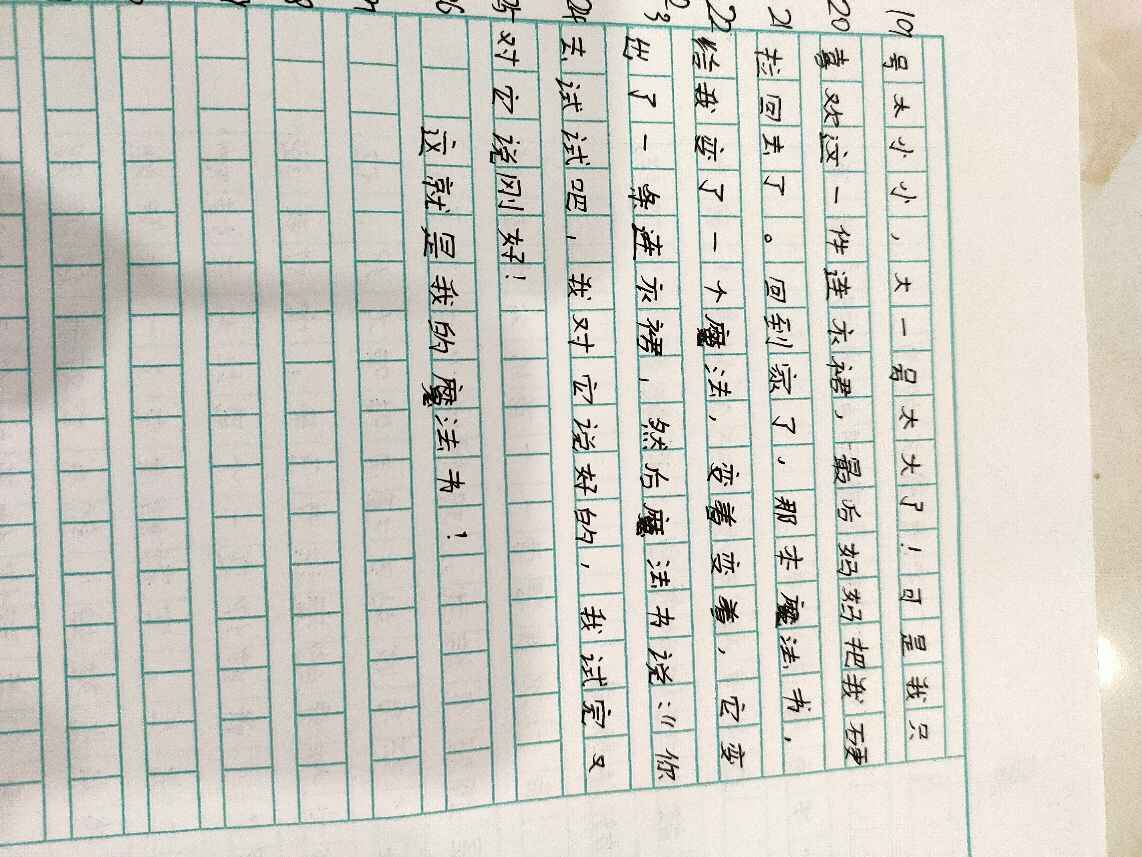 19 号太小小，大一号太大了！可是我只
20 喜欢这一件连衣裙，最后妈妈把我硬
21 拦回去了。回到家了，那本魔法书，
22 给我变了一个魔法，变着变着，它变
23 出了一条连衣裙，然后魔法书说："你
24 去试试吧，我对它说好的，我试完又
25 对它说刚好！
26 这就是我的魔法书！